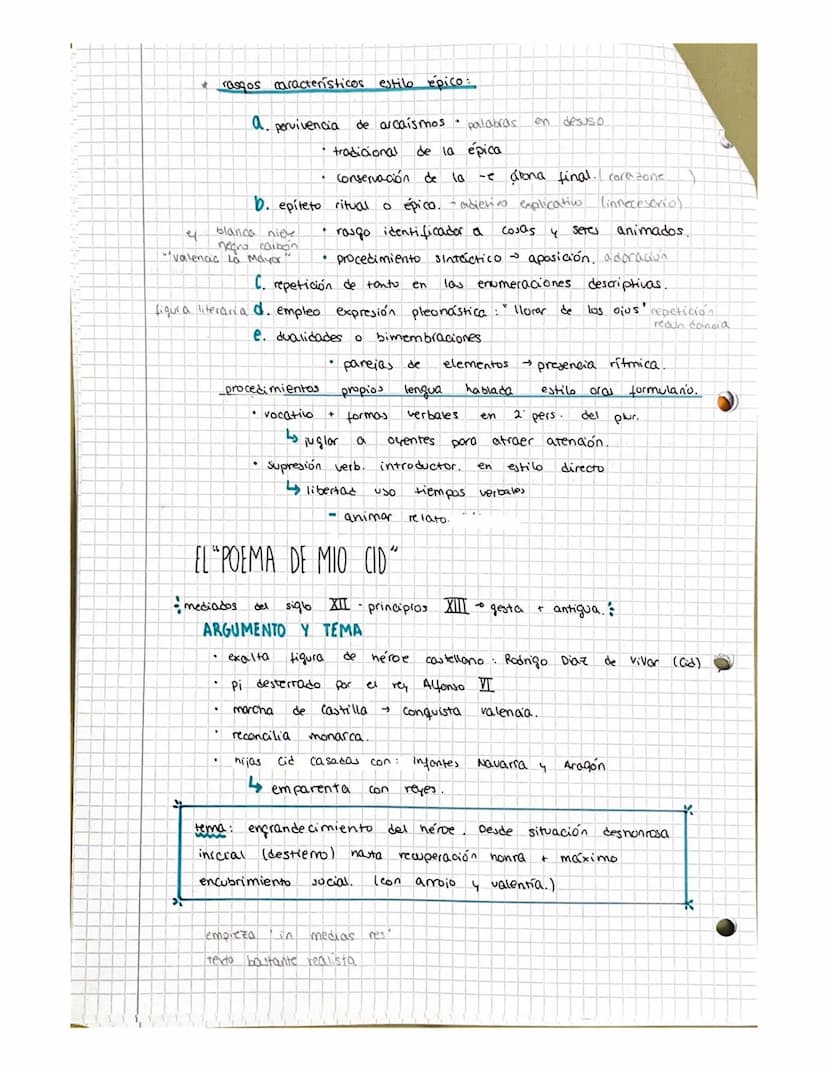 * rasgos característicos estilo épico:
a. pervivencia de arcaísmos · palabras en desuso
· tradicional de la épica
· conservación de la -e átona final. (corazone )
b. epíteto ritual o épico. → adjetivo explicativo (innecesario)
ej blanca nieve · rasgo identificador a cosas y seres animados.
negro carbón
"Valencia la Mayor" · procedimiento sintáctico → aposición. adoración
c. repetición de tanto en las enumeraciones descriptivas.
figura literaria d. empleo expresión pleonástica: "llorar de los ojos" repetición
redundancia
e. dualidades o bimembraciones
· parejas de elementos → presencia rítmica.
procedimientos propios lengua hablada estilo oral formulario.
· vocativo + formas verbales en 2ª pers. del plur.
↳ juglar a oyentes para atraer atención.
· supresión verb. introductor. en estilo directo
↳ libertad uso tiempos verbales
- animar relato.
EL "POEMA DE MIO CID"
mediados del siglo XII - principios XIII → gesta + antigua.
ARGUMENTO Y TEMA
· exalta figura de héroe castellano: Rodrigo Díaz de Vivar (Cid)
· pi desterrado por el rey Alfonso VI
· marcha de Castilla → conquista Valencia.
· reconcilia monarca.
· hijas Cid casadas con: infantes Navarra y Aragón
↳ emparenta con reyes.
tema: engrandecimiento del héroe. Desde situación deshonrosa
inicial (destierro) hasta recuperación honra + máximo
encubrimiento social. (con arrojo y valentía.)
empieza 'in medias res'
texto bastante realista